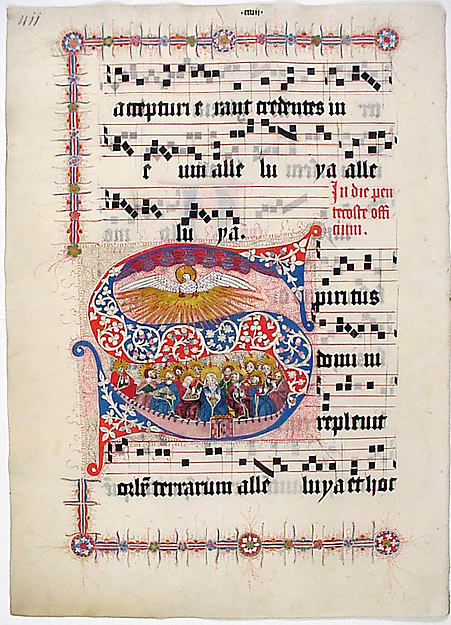 ·ciiij·
accepturi e rant credentes in
e um alle lu ya alle
In die pen
lu ya.
tecoste offi
cium.
Spiritus
domini
repleuit
orbē terrarum alle luya et hoc